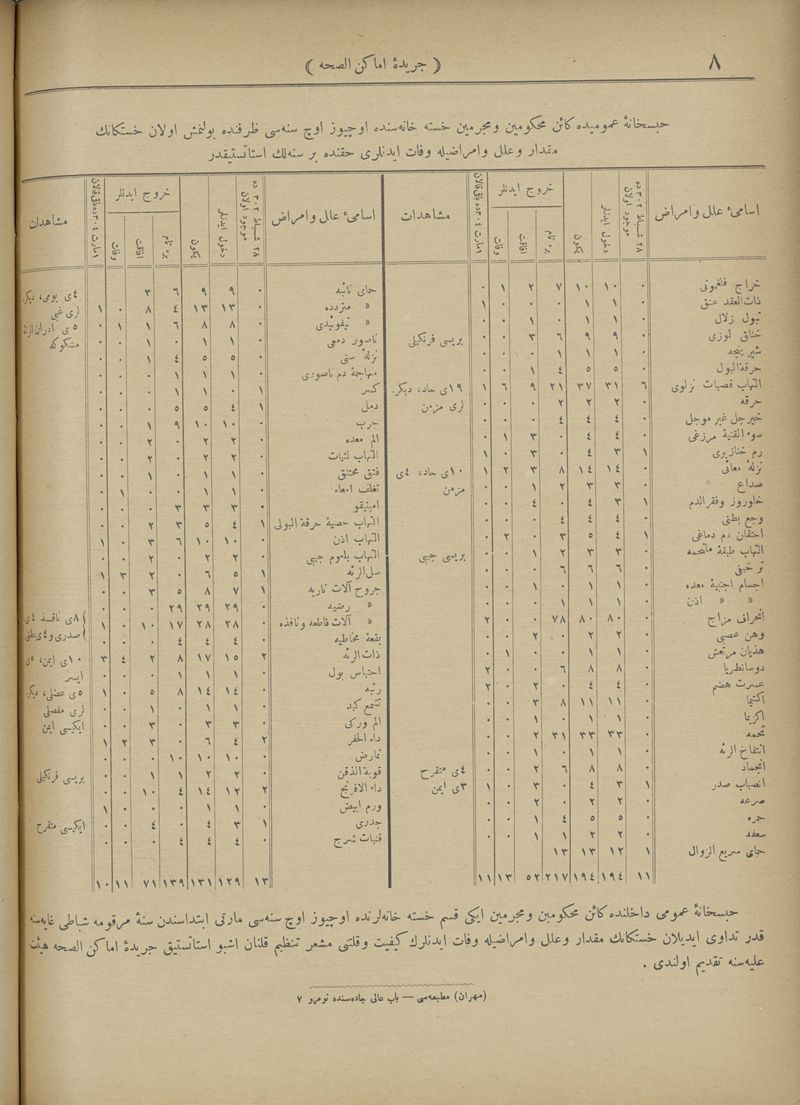 ٨
( جريدهٔ اماكن الصحه )
حبسخانهٔ عموميده كائن محكومين ومجرمين خسته خانه‌سنده اوچيوز اوچ سنه‌سى ظرفنده بولنمش اولان خستكانك
مقدار وعلل وامراضيله وفات ايدنلرى حقنده بر سنه‌لك استاتستيقدر
اسامىٔ علل وامراض
٢٨ شباط ٣٠٢ ده موجود اولان
دخول ايدنلر
يكون
خروج ايدنلر
برء تام
افاقت
وفات
١ مارت ٣٠٤ ده باقى قالان
مشاهدات
خراج فلغمونى ٠ ١٠ ١٠ ٧ ٢ ١ ٠
ذات‌العقد عنق ٠ ١ ١ ٠ ٠ ٠ ١
تبول زلال ٠ ١ ١ ٠ ١ ٠ ٠
خناق لوزى ٠ ٩ ٩ ٦ ٣ ٠ ٠ بريسى فرنكيلى
شيرپنجه ٠ ١ ١ ١ ٠ ٠ ٠
حرقةالبول ٠ ٥ ٥ ٤ ١ ٠ ٠
التهاب قصبات نزلوى ٦ ٣١ ٣٧ ٢١ ٩ ٦ ١ ١٩ى حاد، ديكر.
حرقه ٠ ٢ ٢ ٢ ٠ ٠ ٠ لرى مزمن
خيرجل غير موجل ٠ ٤ ٤ ٤ ٠ ٠ ٠
سوء القنية مرزغى ٠ ٤ ٤ ٠ ٣ ١ ٠
رم خنازيرى ١ ٣ ٤ ٠ ٣ ٠ ١
نزلهٔ معائى ٠ ١٤ ١٤ ٨ ٣ ٢ ١ ١٠ى حاد، ٤ى
صداع ٠ ٣ ٣ ٢ ١ ٠ ٠ مزمن
خلوروز وفقرالدم ١ ٣ ٤ ٠ ٤ ٠ ٠
وجع بطنى ٠ ٤ ٤ ٤ ٠ ٠ ٠
احتقان دم دماغى ١ ٤ ٥ ٣ ٠ ٢ ٠
التهاب طبقهٔ ملتحمه ٠ ٣ ٣ ٢ ١ ٠ ٠ بريسى جيبى
ترخينى ٠ ٦ ٦ ٦ ٠ ٠ ٠
اجسام اجنبيهٔ معده ٠ ١ ١ ٠ ١ ٠ ٠
« « اذن ٠ ١ ١ ١ ٠ ٠ ٠
انحراف مزاج ٠ ٨٠ ٨٠ ٧٨ ٠ ٠ ٢
وهن عصبى ٠ ٢ ٢ ٠ ٢ ٠ ٠
هذيان مرتعش ٠ ١ ١ ٠ ٠ ١ ٠
دوسانطريا ٠ ٨ ٨ ٦ ٠ ٠ ٢
عسرت هضم ٠ ٤ ٤ ٠ ٢ ٠ ٢
اكتيما ٠ ١١ ١١ ٨ ٣ ٠ ٠
اكزيما ٠ ١ ١ ٠ ١ ٠ ٠
تخمه ٠ ٣٣ ٣٣ ٣١ ٢ ٠ ٠
انتفاخ الرئه ٠ ١ ١ ٠ ١ ٠ ٠
انجماد ٠ ٨ ٨ ٦ ٢ ٠ ٠ ٤ى متقرح
انصباب صدر ١ ٣ ٤ ٠ ٣ ٠ ١ ٣ى ايمن
صرعه ٠ ٢ ٢ ٠ ٢ ٠ ٠
حمره ٠ ٥ ٥ ٤ ١ ٠ ٠
سعفه ٠ ٢ ٢ ١ ١ ٠ ٠
حماى سريع الزوال ١ ١٢ ١٣ ١٣
١١ ١٩٤ ١٩٤ ٢١٧ ٥٢ ١٣ ١١
اسامىٔ علل وامراض
٢٨ شباط ٣٠٢ ده موجود اولان
دخول ايدنلر
يكون
خروج ايدنلر
برء تام
افاقت
وفات
١ مارت ٣٠٤ ده باقى قالان
مشاهدات
حماى نائبه ٠ ٩ ٩ ٦ ٣ ٤ى يومى، ديكر
« متردده ٠ ١٣ ١٣ ٤ ٨ ٠ ١ لرى غبى
« تيفوئيدى ٠ ٨ ٨ ٦ ١ ١ ٠ ٥ى ادران‌الرئه
ناصور دمعى ٠ ١ ١ ٠ ١ ٠ ٠ مشكوكه
نزلهٔ سنى ٠ ٥ ٥ ٤ ١ ٠ ٠
مهاجمهٔ دم ناصورى ٠ ١ ١ ١ ٠ ٠ ٠
كسر ١ ٠ ١ ١ ٠ ٠ ٠
دمل ١ ٤ ٥ ٥ ٠ ٠ ٠
جرب ٠ ١٠ ١٠ ٩ ١ ٠ ٠
الم معده ٠ ٢ ٢ ٠ ٢ ٠ ٠
التهاب لثيات ٠ ٢ ٢ ٠ ٢ ٠ ٠
فتق مختنق ٠ ١ ١ ٠ ١ ٠ ٠
تغلف امعاء ٠ ١ ١ ٠ ٠ ١ ٠
امپتيقو ٠ ٣ ٣ ٣ ٠ ٠ ٠
التهاب خصيه حرقة البولى ١ ٤ ٥ ٣ ٢ ٠ ٠
التهاب اذن ٠ ١٠ ١٠ ٦ ٣ ٠ ١
التهاب بلعوم جيبى ٠ ٢ ٢ ٠ ٢ ٠ ٠
سل‌الرئه ١ ٥ ٦ ٠ ٢ ٣ ١
جروح آلات ناريه ١ ٧ ٨ ٥ ٣ ٠ ٠
« رضيه ٠ ٢٩ ٢٩ ٢٩ ٠ ٠ ٠
« آلات قاطعه ونافذه ٠ ٢٨ ٢٨ ١٧ ١٠ ٠ ١ ٨ى نافذ ٤ى
بقعهٔ مخاطيه ٠ ٤ ٤ ٤ ٠ ٠ ٠ صدرى و٤ى بطنى
ذات‌الرئه ٢ ١٥ ١٧ ٨ ٢ ٤ ٣ ١٠ى ايمن، ٥ى
احتباس بول ٠ ١ ١ ١ ٠ ٠ ٠ ايسر
رثيه ٠ ١٤ ١٤ ٨ ٥ ٠ ١ ٥ى عضلى، ديكر
تشمع كبد ٠ ١ ١ ٠ ١ ٠ ٠ لرى مفصلى
الم وركى ٠ ٣ ٣ ٠ ٣ ٠ ٠ ايكيسى ايمن
داء الحفر ٢ ٤ ٦ ٠ ٣ ٢ ١
تمارض ٠ ١٠ ١٠ ١٠ ٠ ٠ ٠
قوبةالذقن ٠ ٢ ٢ ١ ١ ٠ ٠ بريسى فرنكيلى
داء الافرنج ٢ ١٢ ١٤ ٤ ١٠ ٠ ٠
ورم ابيض ٠ ١ ١ ٠ ٠ ٠ ١
جدرى ١ ٣ ٤ ٠ ٤ ٠ ٠ ايكيسى متقرح
قنبات شرج ٠ ٤ ٤ ٤ ٠ ٠ ٠
١٣ ١٢٩ ١٣١ ١٣٩ ٧١ ١١ ١٠
حبسخانهٔ عمومى داخلنده كائن محكومين ومجرمين ايكى قسم خسته خانه‌لرنده اوچيوز اوچ سنه‌سى مارتى ابتداسندن سنهٔ مرقومه شباطى غايه‌سنه
قدر تداوى ايديلان خستكانك مقدار وعلل وامراضيله وفات ايدنلرك كيفيت وقلتنى مشعر تنظيم قلنان اشبو استاتستيق جريدهٔ اماكن الصحه هيئت
عليه‌سنه تقديم اولندى .
(مهران) مطبعه‌سى — باب عالى جاده‌سنده نومرو ٧